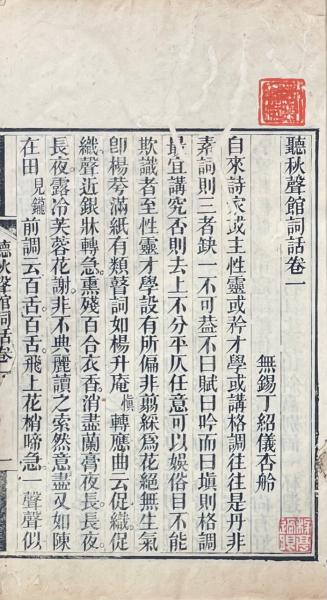 聽秋聲館詞話卷一
無錫丁紹儀杏舲
自來詩家或主性靈或矜才學或講格調往往是丹非
素詞則三者缺一不可蓋不曰賦曰吟而曰塡則格調
最宜講究否則去上不分平仄任意可以娛俗目不能
欺識者至性靈才學設有所偏非翦綵爲花絕無生氣
卽楊花滿紙有類瞽詞如楊升庵愼轉應曲云促織促
織聲近銀牀轉急熏殘百合衣香消盡蘭膏夜長長夜
長夜露冷芙蓉花謝非不典麗讀之索然意盡又如陳
在田見鑨前調云百舌百舌飛上花梢啼急一聲聲似
聽秋聲館詞話卷一